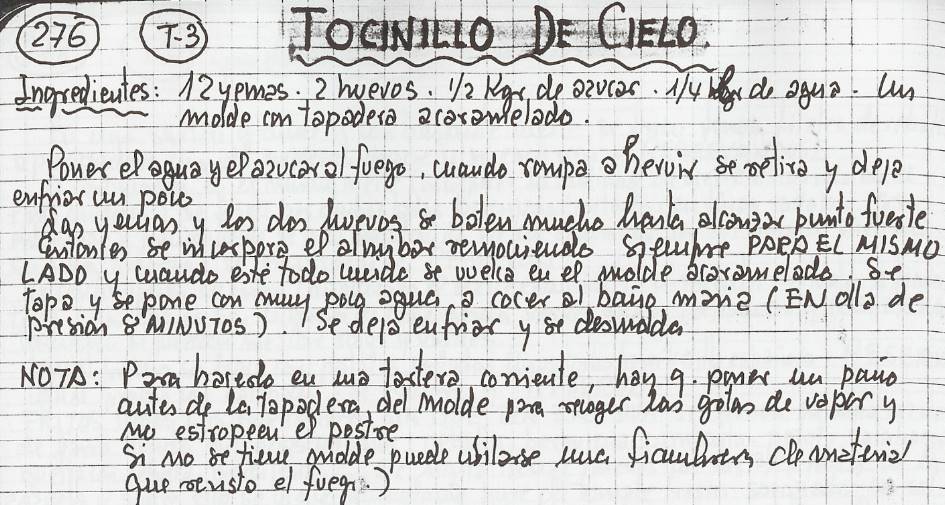 276 T-3 TOCINILLO DE CIELO.
Ingredientes: 12 yemas. 2 huevos. 1/2 Kgr de azucar. 1/4 Kgr de agua. Un
molde con tapadera acaramelado.
Poner el agua y el azucar al fuego, cuando rompa a hervir se retira y deja
enfriar un poco
Las yemas y los dos huevos se baten mucho hasta alcanzar punto fuerte
Entonces se incorpora el almibar removiendo siempre PARA EL MISMO
LADO y cuando esté todo unido se vuelca en el molde acaramelado. Se
tapa y se pone con muy poco agua, a cocer al baño maria (EN olla de
presion 8 MINUTOS). Se deja enfriar y se desmolda
NOTA: Para hacerlo en una tartera corriente, hay q. poner un paño
antes de la tapadera del molde para recoger las gotas de vapor y
no estropeen el postre
Si no se tiene molde puede utilizarse una fiambrera de material
que resista el fuego.)